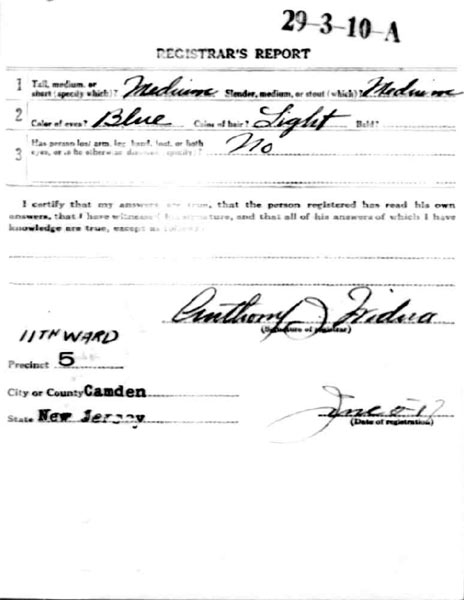 29-3-10-A
REGISTRAR'S REPORT
1 Tall, medium, or short (specify which)? Medium Slender, medium, or stout (which)? Medium
2 Color of eyes? Blue Color of hair? Light Bald?
3 Has person lost arm, leg, hand, foot, or both eyes, or is he otherwise disabled (specify)? No
I certify that my answers are true, that the person registered has read his own
answers, that I have witnessed his signature, and that all of his answers of which I have
knowledge are true, except as follows:
Anthony J
(Signature of registrar)
11TH WARD
Precinct 5
City or County Camden
State New Jersey
June 5-17
(Date of registration)